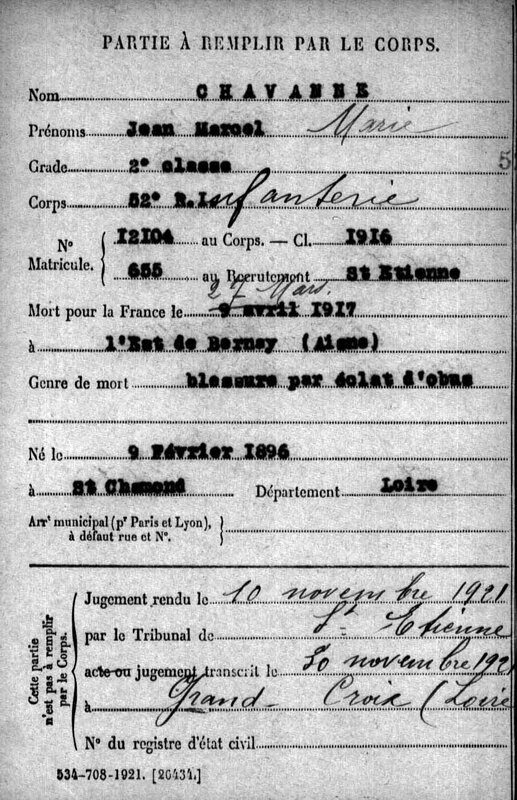 PARTIE À REMPLIR PAR LE CORPS.
Nom CHAVANNE
Prénoms Jean Marcel Marie
Grade 2e classe
5
Corps 52e R.Infanterie
N° Matricule. 12104 au Corps. — Cl. 1916
655 au Recrutement St Etienne
27 Mars.
Mort pour la France le 9 avril 1917
à l'Est de Bernay (Aisne)
Genre de mort blessure par éclat d'obus
Né le 9 Février 1896
à St Chamond Département Loire
Arrt municipal (pr Paris et Lyon),
à défaut rue et N°.
Cette partie n'est pas à remplir par le Corps.
Jugement rendu le 10 novembre 1921
par le Tribunal de St Etienne
acte ou jugement transcrit le 30 novembre 192
à Grand-Croix (Loire
N° du registre d'état civil
534-708-1921. [26434.]